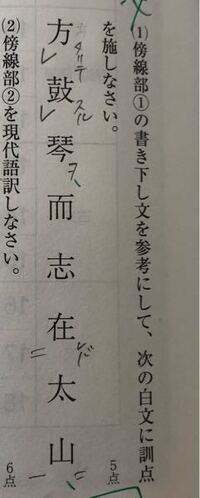 (1)傍線部①の書き下し文を参考にして、次の白文に訓点
を施しなさい。
5点
方鼓琴而志在太山
レ レ ヲ 二 ニ 一
(2)傍線部②を現代語訳しなさい。
6点